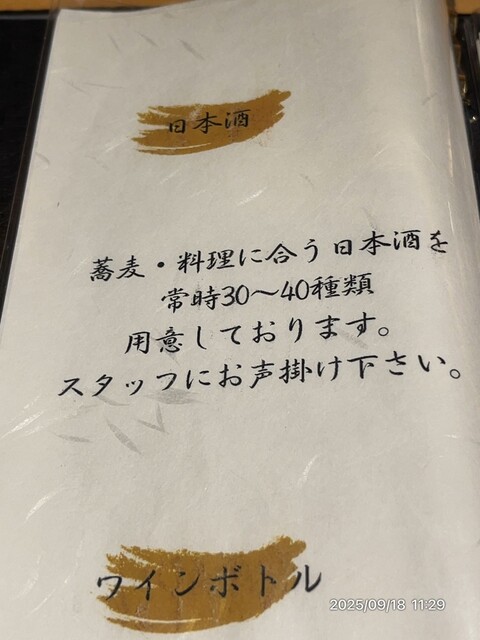 日本酒
蕎麦・料理に合う日本酒を
常時30～40種類
用意しております。
スタッフにお声掛け下さい。
ワインボトル
2025/09/18 11:29